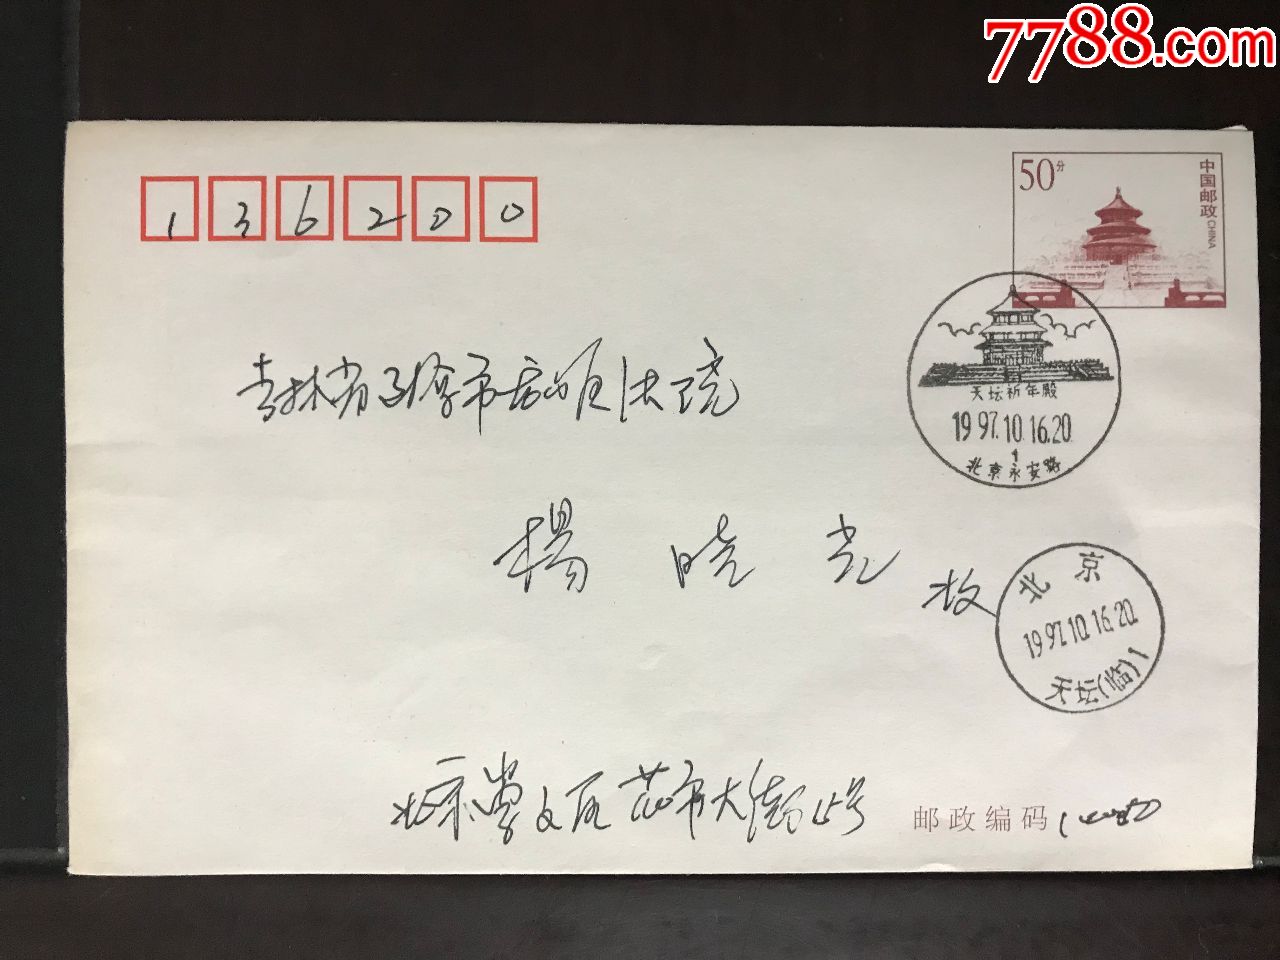 7788.com
136200
50分
中国邮政 CHINA
吉林省辽源市西安区法院
天坛祈年殿
1997.10.16.20
1
北京永安路
楊 晓 光 收
北京
1997.10.16.20
天坛(临)1
北京崇文区 市大街 号
邮政编码